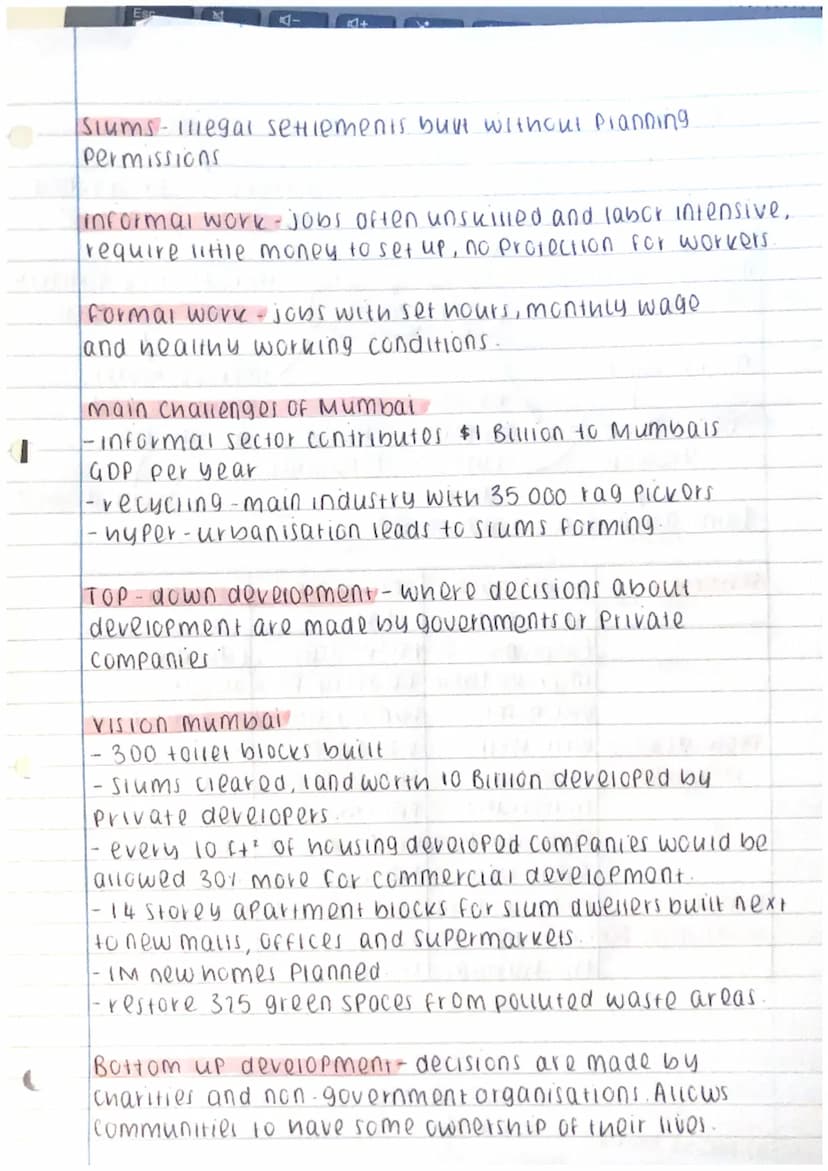 Esc
Slums - illegal settlements built without planning
permissions
informal work - jobs often unskilled and labor intensive,
require little money to set up, no protection for workers
formal work - jobs with set hours, monthly wage
and healthy working conditions.
main challenges of Mumbai
- informal sector contributes $1 Billion to Mumbais
GDP per year
- recycling - main industry with 35 000 rag pickers
- hyper-urbanisation leads to slums forming.
TOP-down development - where decisions about
development are made by governments or private
companies
vision mumbai
- 300 toilet blocks built
- slums cleared, land worth 10 Billion developed by
private developers.
- every 10 ft² of housing developed companies would be
allowed 30% more for commercial development.
- 14 storey apartment blocks for slum dwellers built next
to new malls, offices and supermarkets.
- 1M new homes planned
- restore 325 green spaces from polluted waste areas.
Bottom up development - decisions are made by
charities and non-government organisations. Allows
communities to have some ownership of their lives.